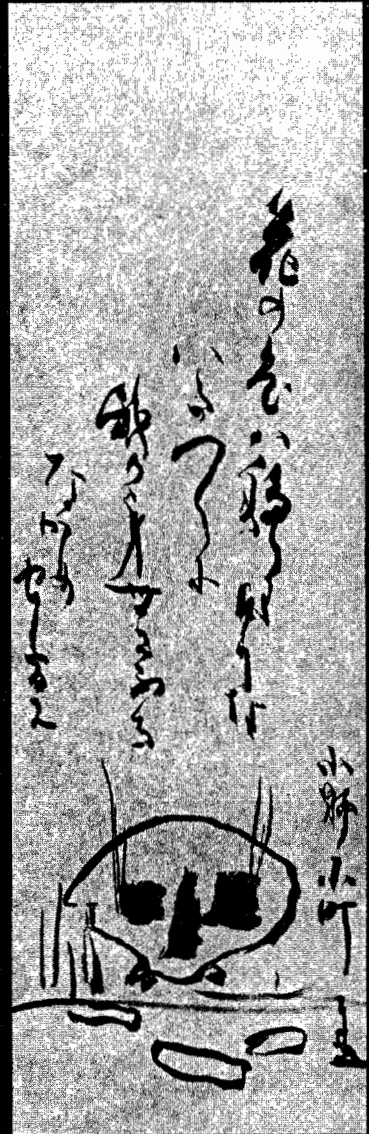 花の色ハ移りにけりな
いたつらに
我か身世にふる
なかめ
せしまに
小野小町